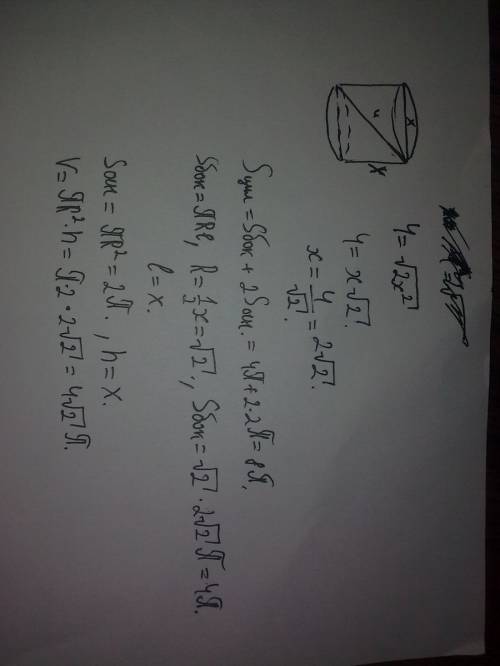 4 = √2x²
4 = x√2.
x = 4/√2 = 2√2.
x
4
x
Sцил = Sбок + 2Sосн. = 4π + 2·2π = 8π.
Sбок = πRl, R = 1/2 x = √2, Sбок = √2 · 2√2 π = 4π.
l = x.
Sосн = πR² = 2π. , h = x.
V = πR²·h = π2·2√2 = 4√2 π.